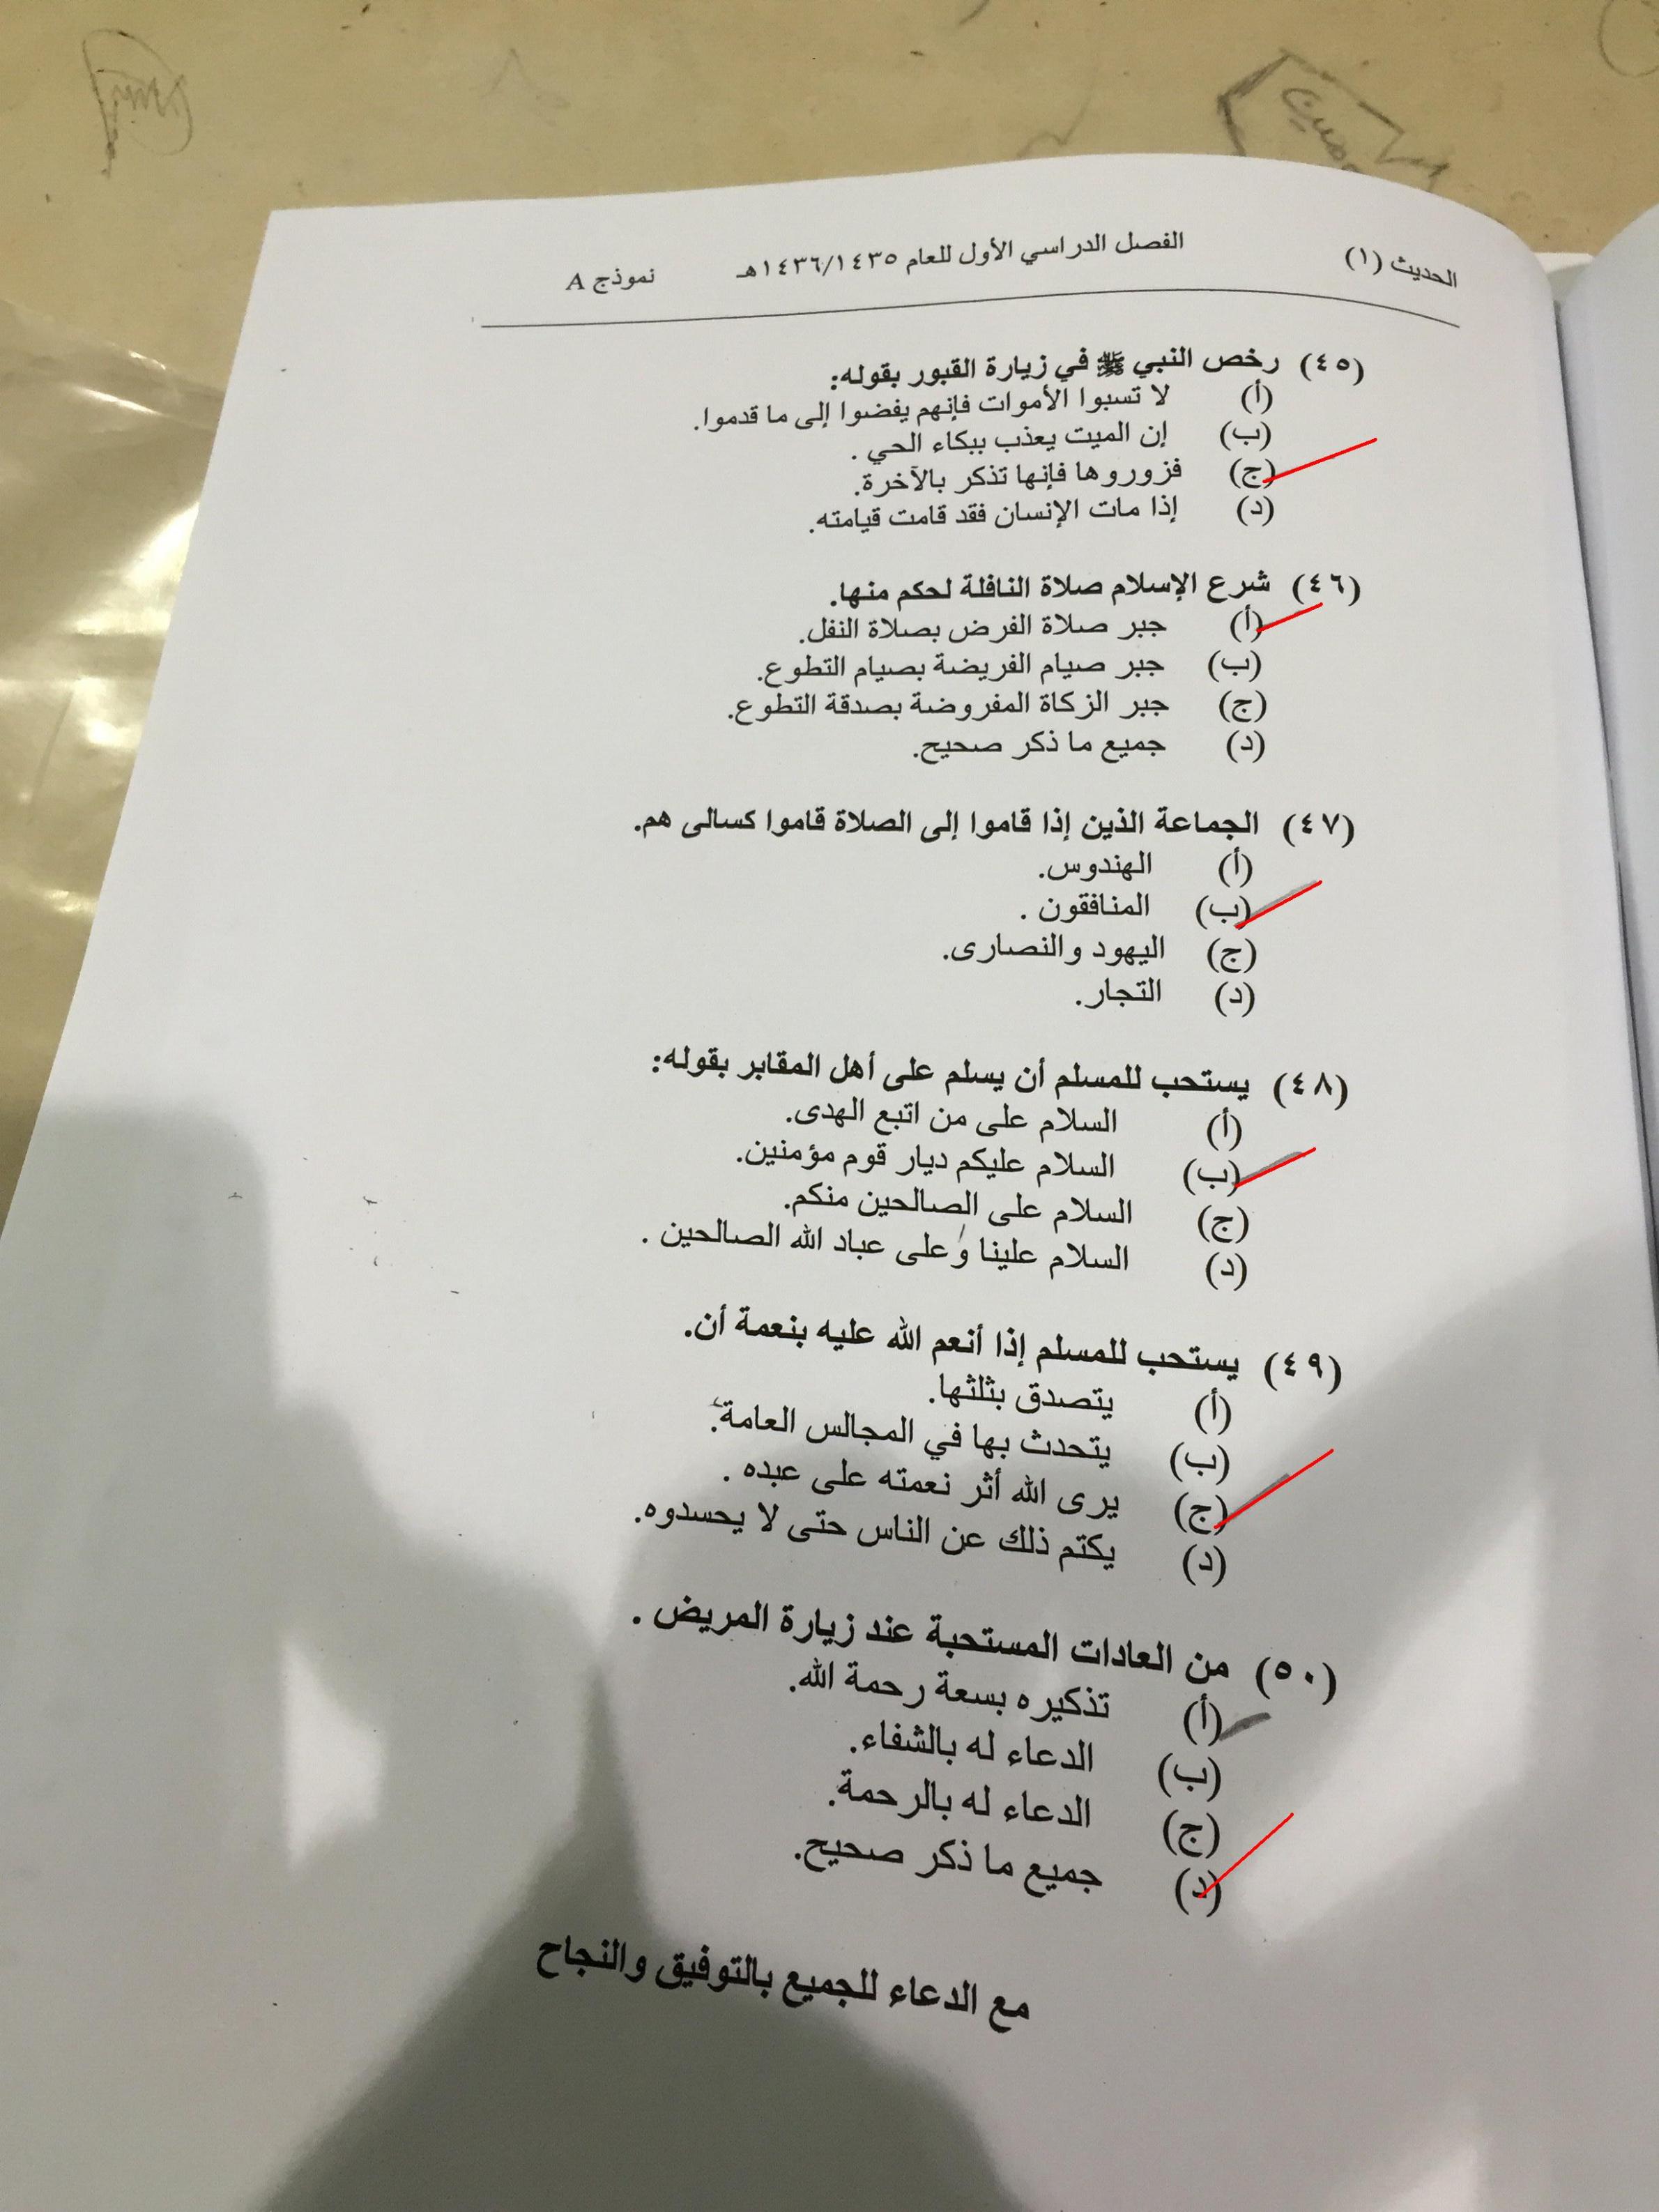 الحديث (١) الفصل الدراسي الأول للعام ١٤٣٦/١٤٣٥هـ نموذج A
(٤٥) رخص النبي ﷺ في زيارة القبور بقوله:
(أ) لا تسبوا الأموات فإنهم يفضوا إلى ما قدموا.
(ب) إن الميت يعذب ببكاء الحي .
(ج) فزوروها فإنها تذكر بالآخرة.
(د) إذا مات الإنسان فقد قامت قيامته.
(٤٦) شرع الإسلام صلاة النافلة لحكم منها.
(أ) جبر صلاة الفرض بصلاة النفل.
(ب) جبر صيام الفريضة بصيام التطوع.
(ج) جبر الزكاة المفروضة بصدقة التطوع.
(د) جميع ما ذكر صحيح.
(٤٧) الجماعة الذين إذا قاموا إلى الصلاة قاموا كسالى هم.
(أ) الهندوس.
(ب) المنافقون .
(ج) اليهود والنصارى.
(د) التجار.
(٤٨) يستحب للمسلم أن يسلم على أهل المقابر بقوله:
(أ) السلام على من اتبع الهدى.
(ب) السلام عليكم ديار قوم مؤمنين.
(ج) السلام على الصالحين منكم.
(د) السلام علينا وعلى عباد الله الصالحين .
(٤٩) يستحب للمسلم إذا أنعم الله عليه بنعمة أن.
(أ) يتصدق بثلثها.
(ب) يتحدث بها في المجالس العامة.
(ج) يرى الله أثر نعمته على عبده .
(د) يكتم ذلك عن الناس حتى لا يحسدوه.
(٥٠) من العادات المستحبة عند زيارة المريض .
(أ) تذكيره بسعة رحمة الله.
(ب) الدعاء له بالشفاء.
(ج) الدعاء له بالرحمة.
(د) جميع ما ذكر صحيح.
مع الدعاء للجميع بالتوفيق والنجاح